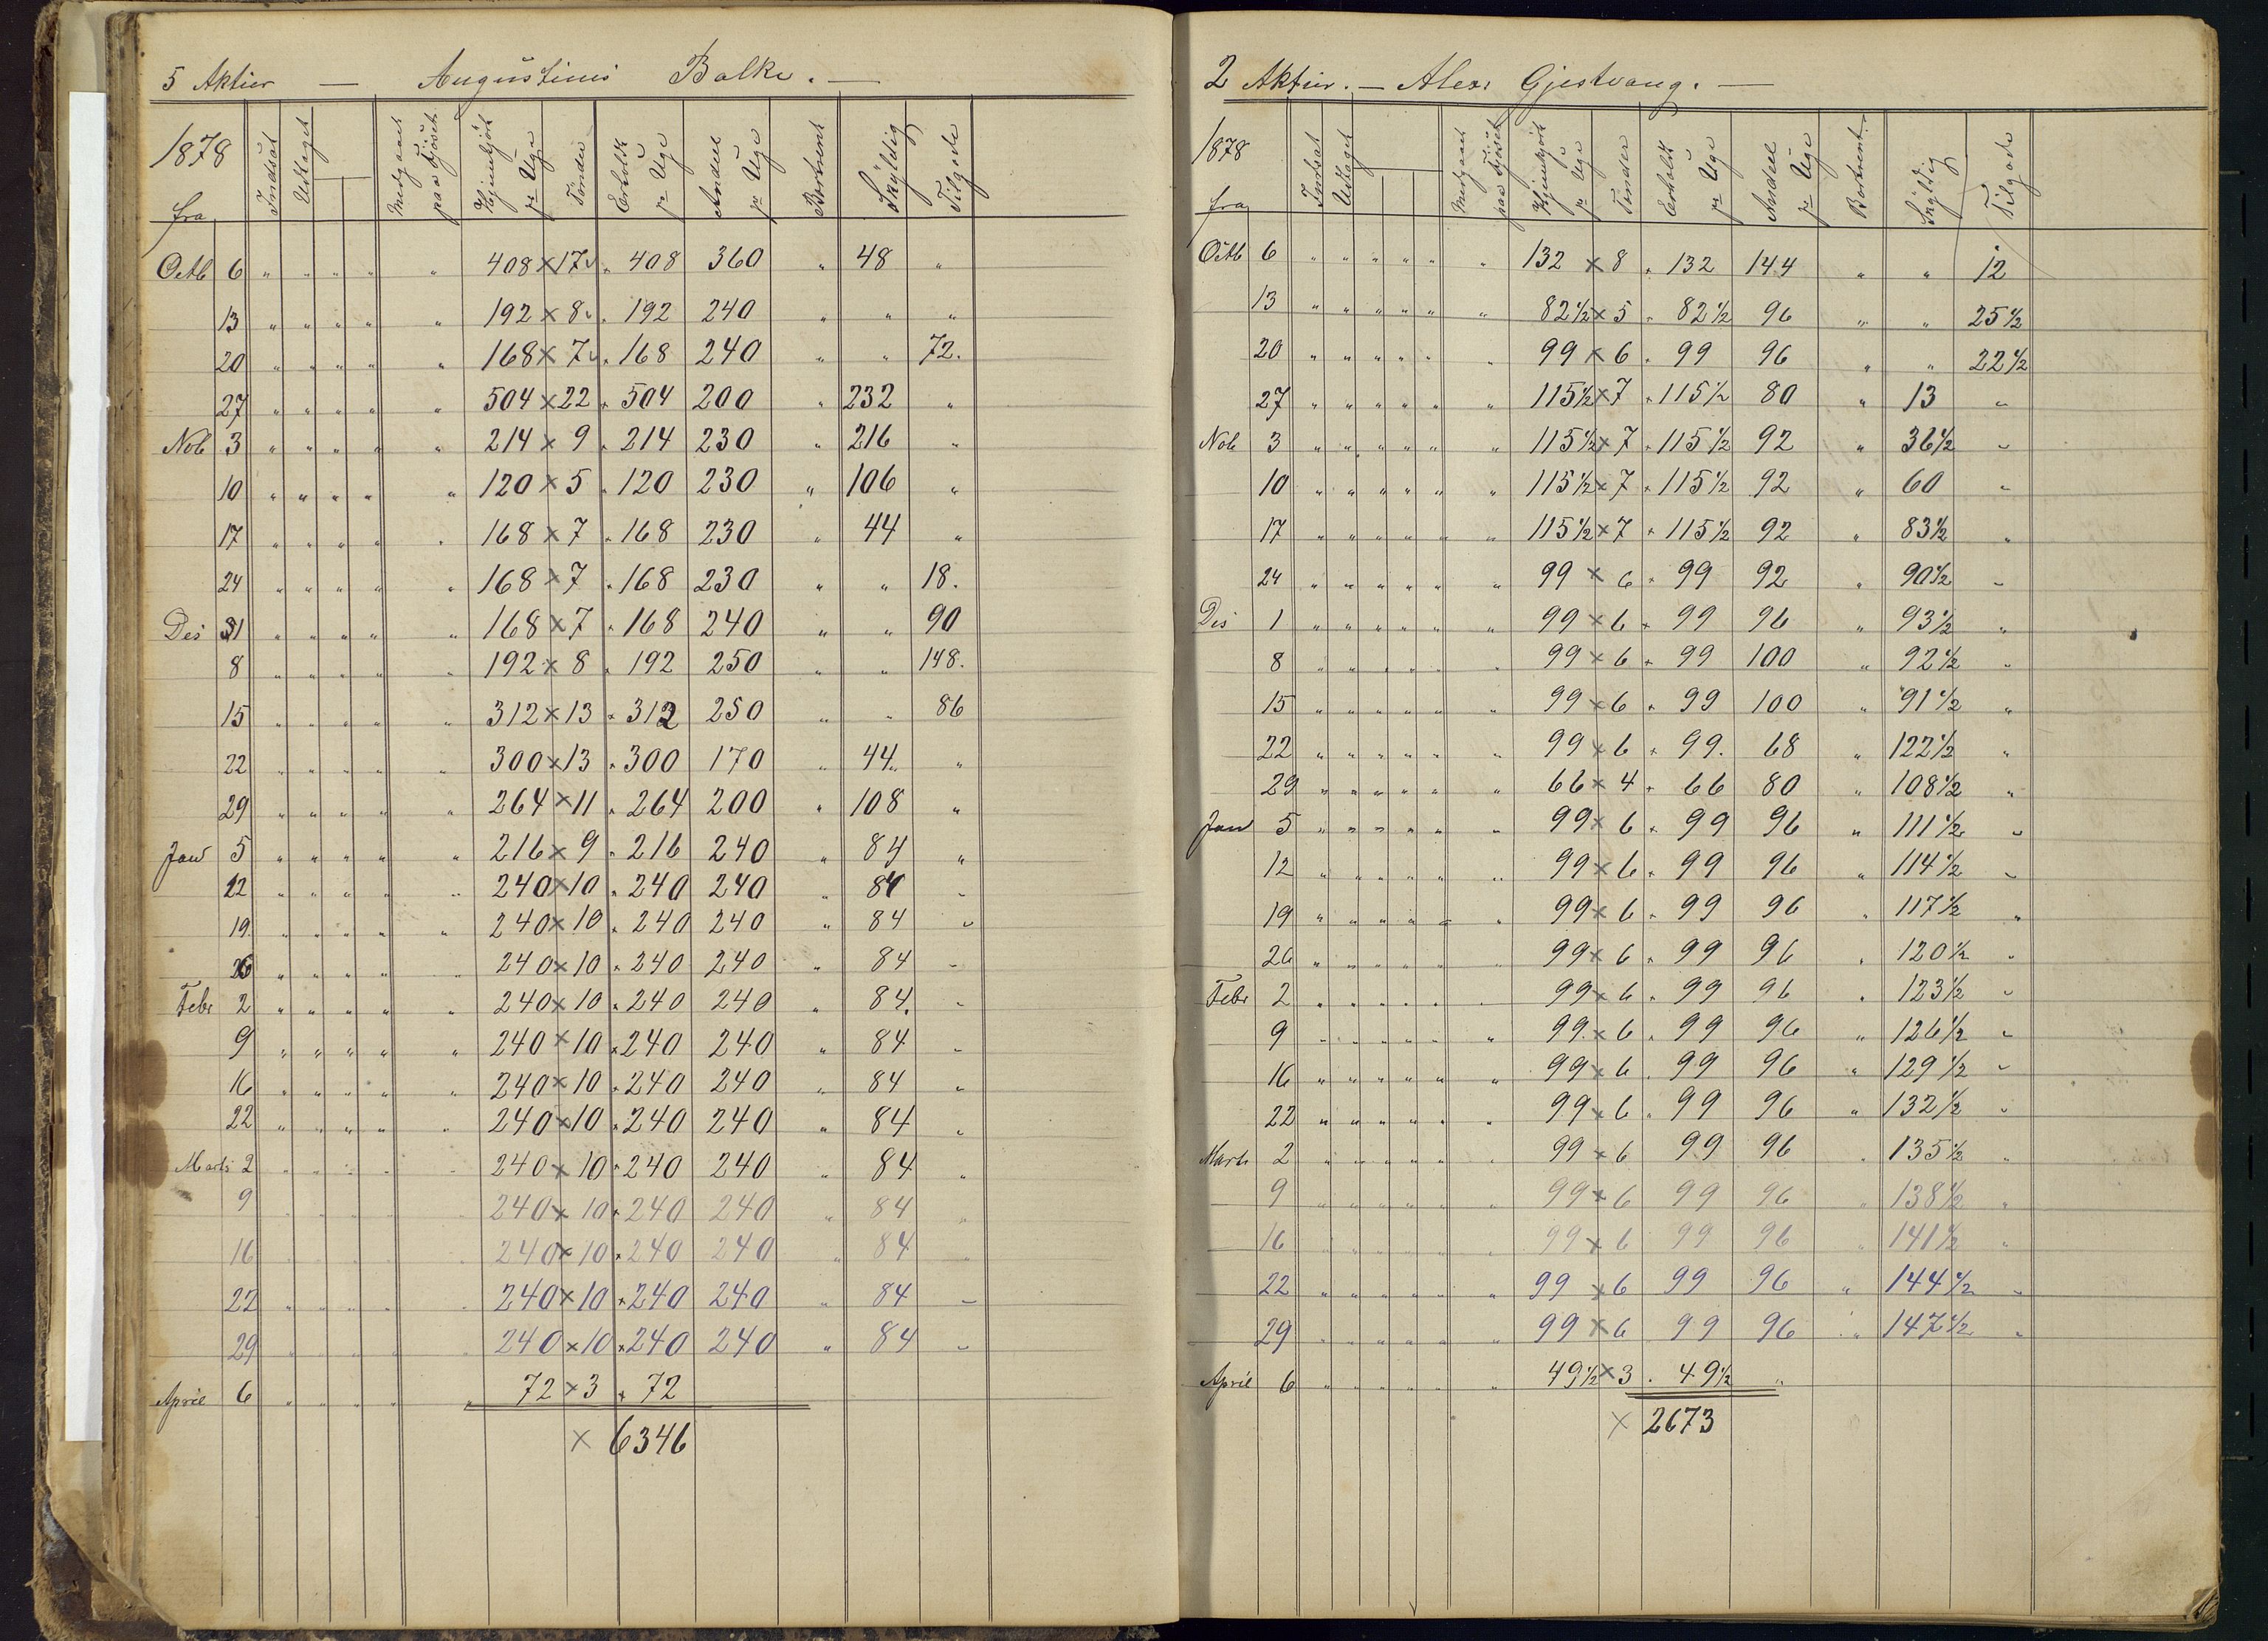 5 Aktier — Augustinus Balke. —
1878 fra Indsat Udtaget Medgaaet paa Fjöset Hjemkjört pr Uge Tönder Erholdt pr Uge Andeel pr Uge Bortrent Skyldig Tilgode
Octb 6 " " " " " 408 × 17 " 408 360 " 48 "
13 " " " " " 192 × 8 " 192 240 " " "
20 " " " " " 168 × 7 " 168 240 " " 72.
27 " " " " " 504 × 22 " 504 200 " 232 "
Nob 3 " " " " " 214 × 9 " 214 230 " 216 "
10 " " " " " 120 × 5 " 120 230 " 106 "
17 " " " " " 168 × 7 " 168 230 " 44 "
24 " " " " " 168 × 7 " 168 230 " " 18.
Des 1 " " " " " 168 × 7 " 168 240 " " 90
8 " " " " " 192 × 8 " 192 250 " " 148.
15 " " " " " 312 × 13 " 312 250 " " 86
22 " " " " " 300 × 13 " 300 170 " 44 "
29 " " " " " 264 × 11 " 264 200 " 108 "
Jan 5 " " " " " 216 × 9 " 216 240 " 84 "
12 " " " " " 240 × 10 " 240 240 " 84 "
19 " " " " " 240 × 10 " 240 240 " 84 "
26 " " " " " 240 × 10 " 240 240 " 84 "
Febr 2 " " " " " 240 × 10 " 240 240 " 84. "
9 " " " " " 240 × 10 " 240 240 " 84 "
16 " " " " " 240 × 10 " 240 240 " 84 "
22 " " " " " 240 × 10 " 240 240 " 84 "
Marts 2 " " " " " 240 × 10 " 240 240 " 84 "
9 " " " " " 240 × 10 " 240 240 " 84 "
16 " " " " " 240 × 10 " 240 240 " 84 "
22 " " " " " 240 × 10 " 240 240 " 84 "
29 " " " " " 240 × 10 " 240 240 " 84 "
April 6 " " " " " 72 × 3 " 72
× 6346
2 Aktier. — Alex: Gjestvang. —
1878 fra Indsat Udtaget Medgaaet paa Fjöset Hjemkjört pr Uge Tönder Erholdt pr Uge Andeel pr Uge Bortrent Skyldig Tilgode
Octb 6 " " " " " " 132 × 8 " 132 144 " " 12
13 " " " " " " 82½ × 5 " 82½ 96 " " 25½
20 " " " " " " 99 × 6 " 99 96 " " 22½
27 " " " " " " 115½ × 7 " 115½ 80 " 13 "
Nob 3 " " " " " " 115½ × 7 " 115½ 92 " 36½ "
10 " " " " " " 115½ × 7 " 115½ 92 " 60 "
17 " " " " " " 115½ × 7 " 115½ 92 " 83½ "
24 " " " " " " 99 × 6 " 99 92 " 90½ "
Des 1 " " " " " " 99 × 6 " 99 96 " 93½ "
8 " " " " " " 99 × 6 " 99 100 " 92½ "
15 " " " " " " 99 × 6 " 99 100 " 91½ "
22 " " " " " " 99 × 6 " 99. 68 " 122½ "
29 " " " " " " 66 × 4 " 66 80 " 108½ "
Jan 5 " " " " " " 99 × 6 " 99 96 " 111½ "
12 " " " " " " 99 × 6 " 99 96 " 114½ "
19 " " " " " " 99 × 6 " 99 96 " 117½ "
26 " " " " " " 99 × 6 " 99 96 " 120½ "
Febr 2 " " " " " " 99 × 6 " 99 96 " 123½ "
9 " " " " " " 99 × 6 " 99 96 " 126½ "
16 " " " " " " 99 × 6 " 99 96 " 129½ "
22 " " " " " " 99 × 6 " 99 96 " 132½ "
Marts 2 " " " " " " 99 × 6 99 96 " 135½ "
9 " " " " " " 99 × 6 99 96 " 138½ "
16 " " " " " " 99 × 6 99 96 " 141½ "
22 " " " " " " 99 × 6 99 96 " 144½ "
29 " " " " " " 99 × 6 99 96 " 147½ "
April 6 " " " " " " 49½ × 3 . 49½ "
× 2673